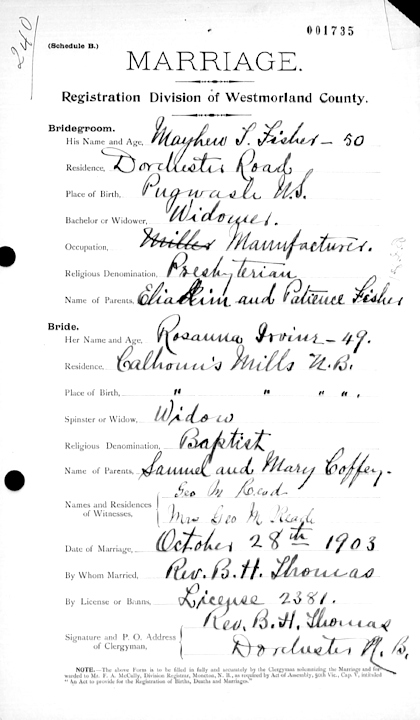 001735
240
(Schedule B.)
MARRIAGE.
Registration Division of Westmorland County.
Bridegroom.
His Name and Age, Mayhew T. Fisher - 50
Residence, Dorchester Road
Place of Birth, Pugwash N.S.
Bachelor or Widower, Widower.
Occupation, Miller Manufacturer.
Religious Denomination, Presbyterian
Name of Parents, Eliakim and Patience Fisher
Bride.
Her Name and Age, Rosanna Irvine - 49.
Residence, Calhoun's Mills N.B.
Place of Birth, " " " "
Spinster or Widow, Widow
Religious Denomination, Baptist
Name of Parents, Samuel and Mary Coffey.
Names and Residences of Witnesses. Geo M. Read
Mrs Geo M. Read
Date of Marriage, October 28th 1903
By Whom Married, Rev. B. H. Thomas
By License or Banns, License 2381.
Signature and P. O. Address of Clergyman. Rev. B. H. Thomas
Dorchester N. B.
NOTE.—The above Form is to be filled in fully and accurately by the Clergyman solemnizing the Marriage and forwarded to Mr. F. A. McCully, Division Registrar, Moncton, N. B., as required by Act of Assembly, 50th Vic., Cap. V, intituled
"An Act to provide for the Registration of Births, Deaths and Marriages."